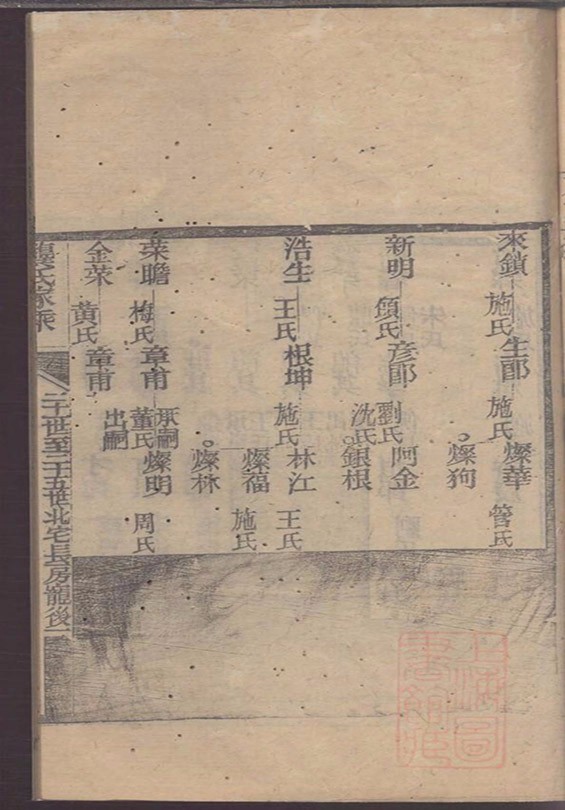 來鎖 施氏 生郎 施氏 燦華 管氏
燦狗
新明 須氏 彦郎 劉氏 阿金
沈氏 銀根
浩生 王氏 根坤 施氏 林江 王氏
燦福 施氏
燦林
菜瞻 梅氏 章甫 承嗣 董氏 燦明 周氏
金菜 黄氏 章甫 出嗣
氏家乘
世至二十五世北宅長房寵後一
上海圖書館藏